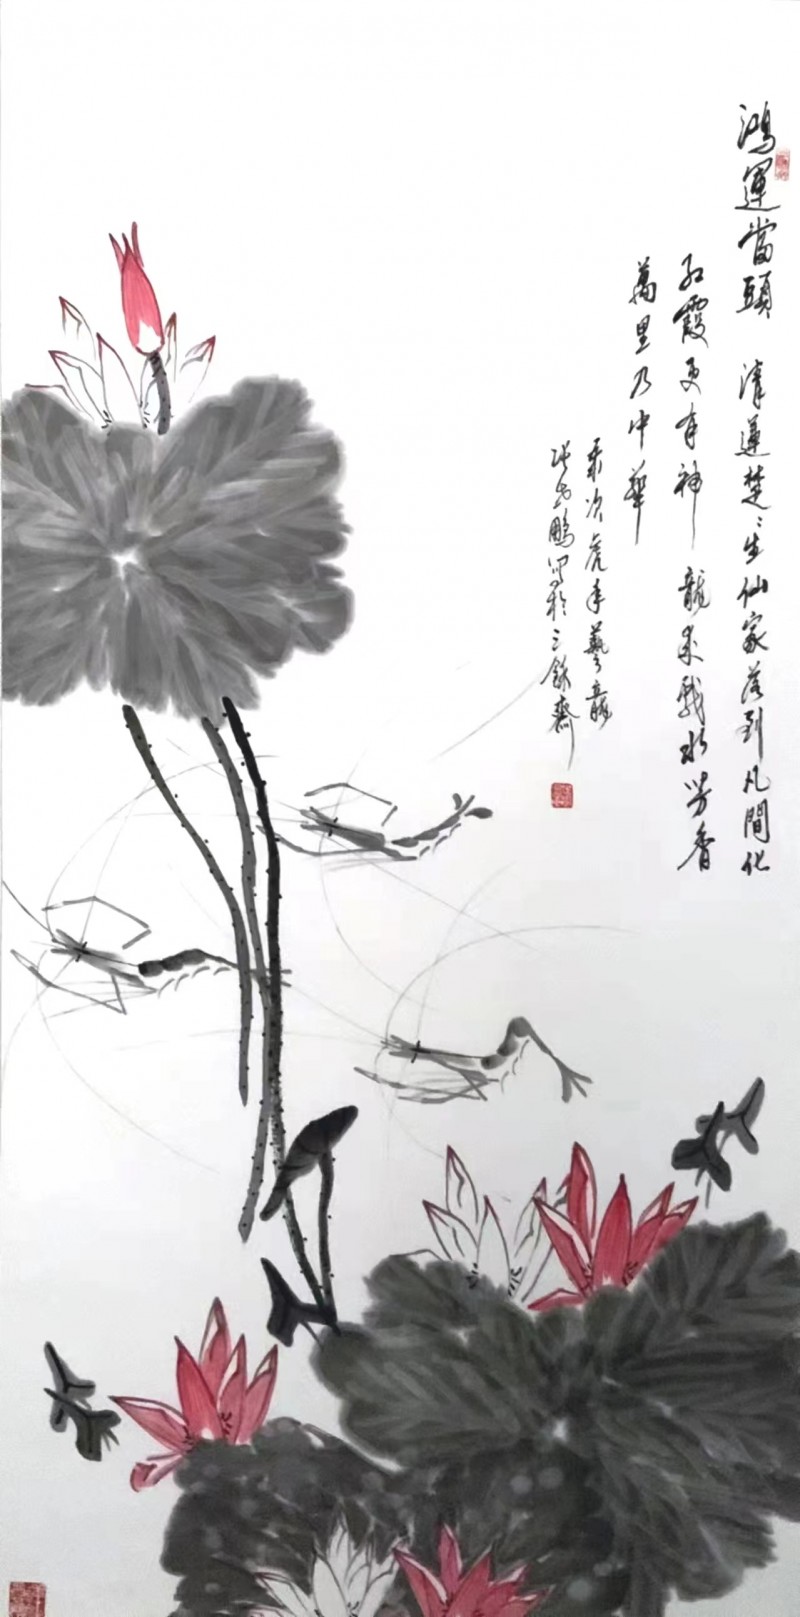 鴻運當頭 清蓮楚々生仙家落到凡間化
紅霞更有神 龍來戲水芳香
萬里乃中華
次虎年藝龍
鵬寫於三餘齋